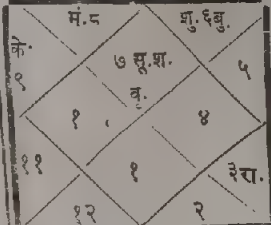 मं.८ शु.६बु.
के.
९
७ सू.श.
वृ.
५
१ ४
११ १ ३रा.
१२ २